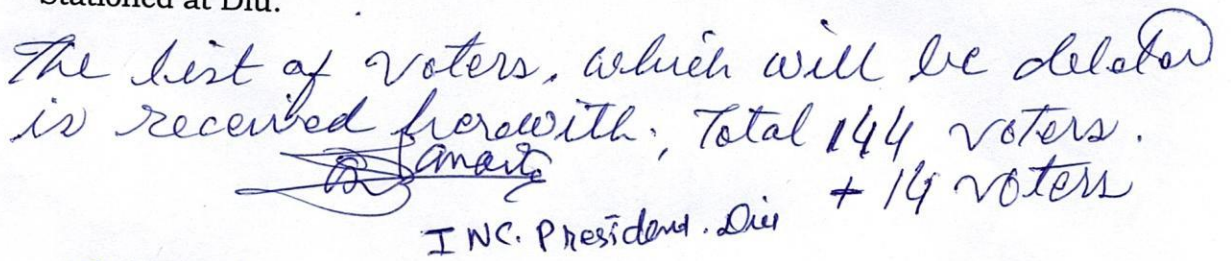 Stationed at Diu.
The list of voters, which will be deleted
is received herewith, Total 144 voters.
+ 14 voters
INC. President. Diu